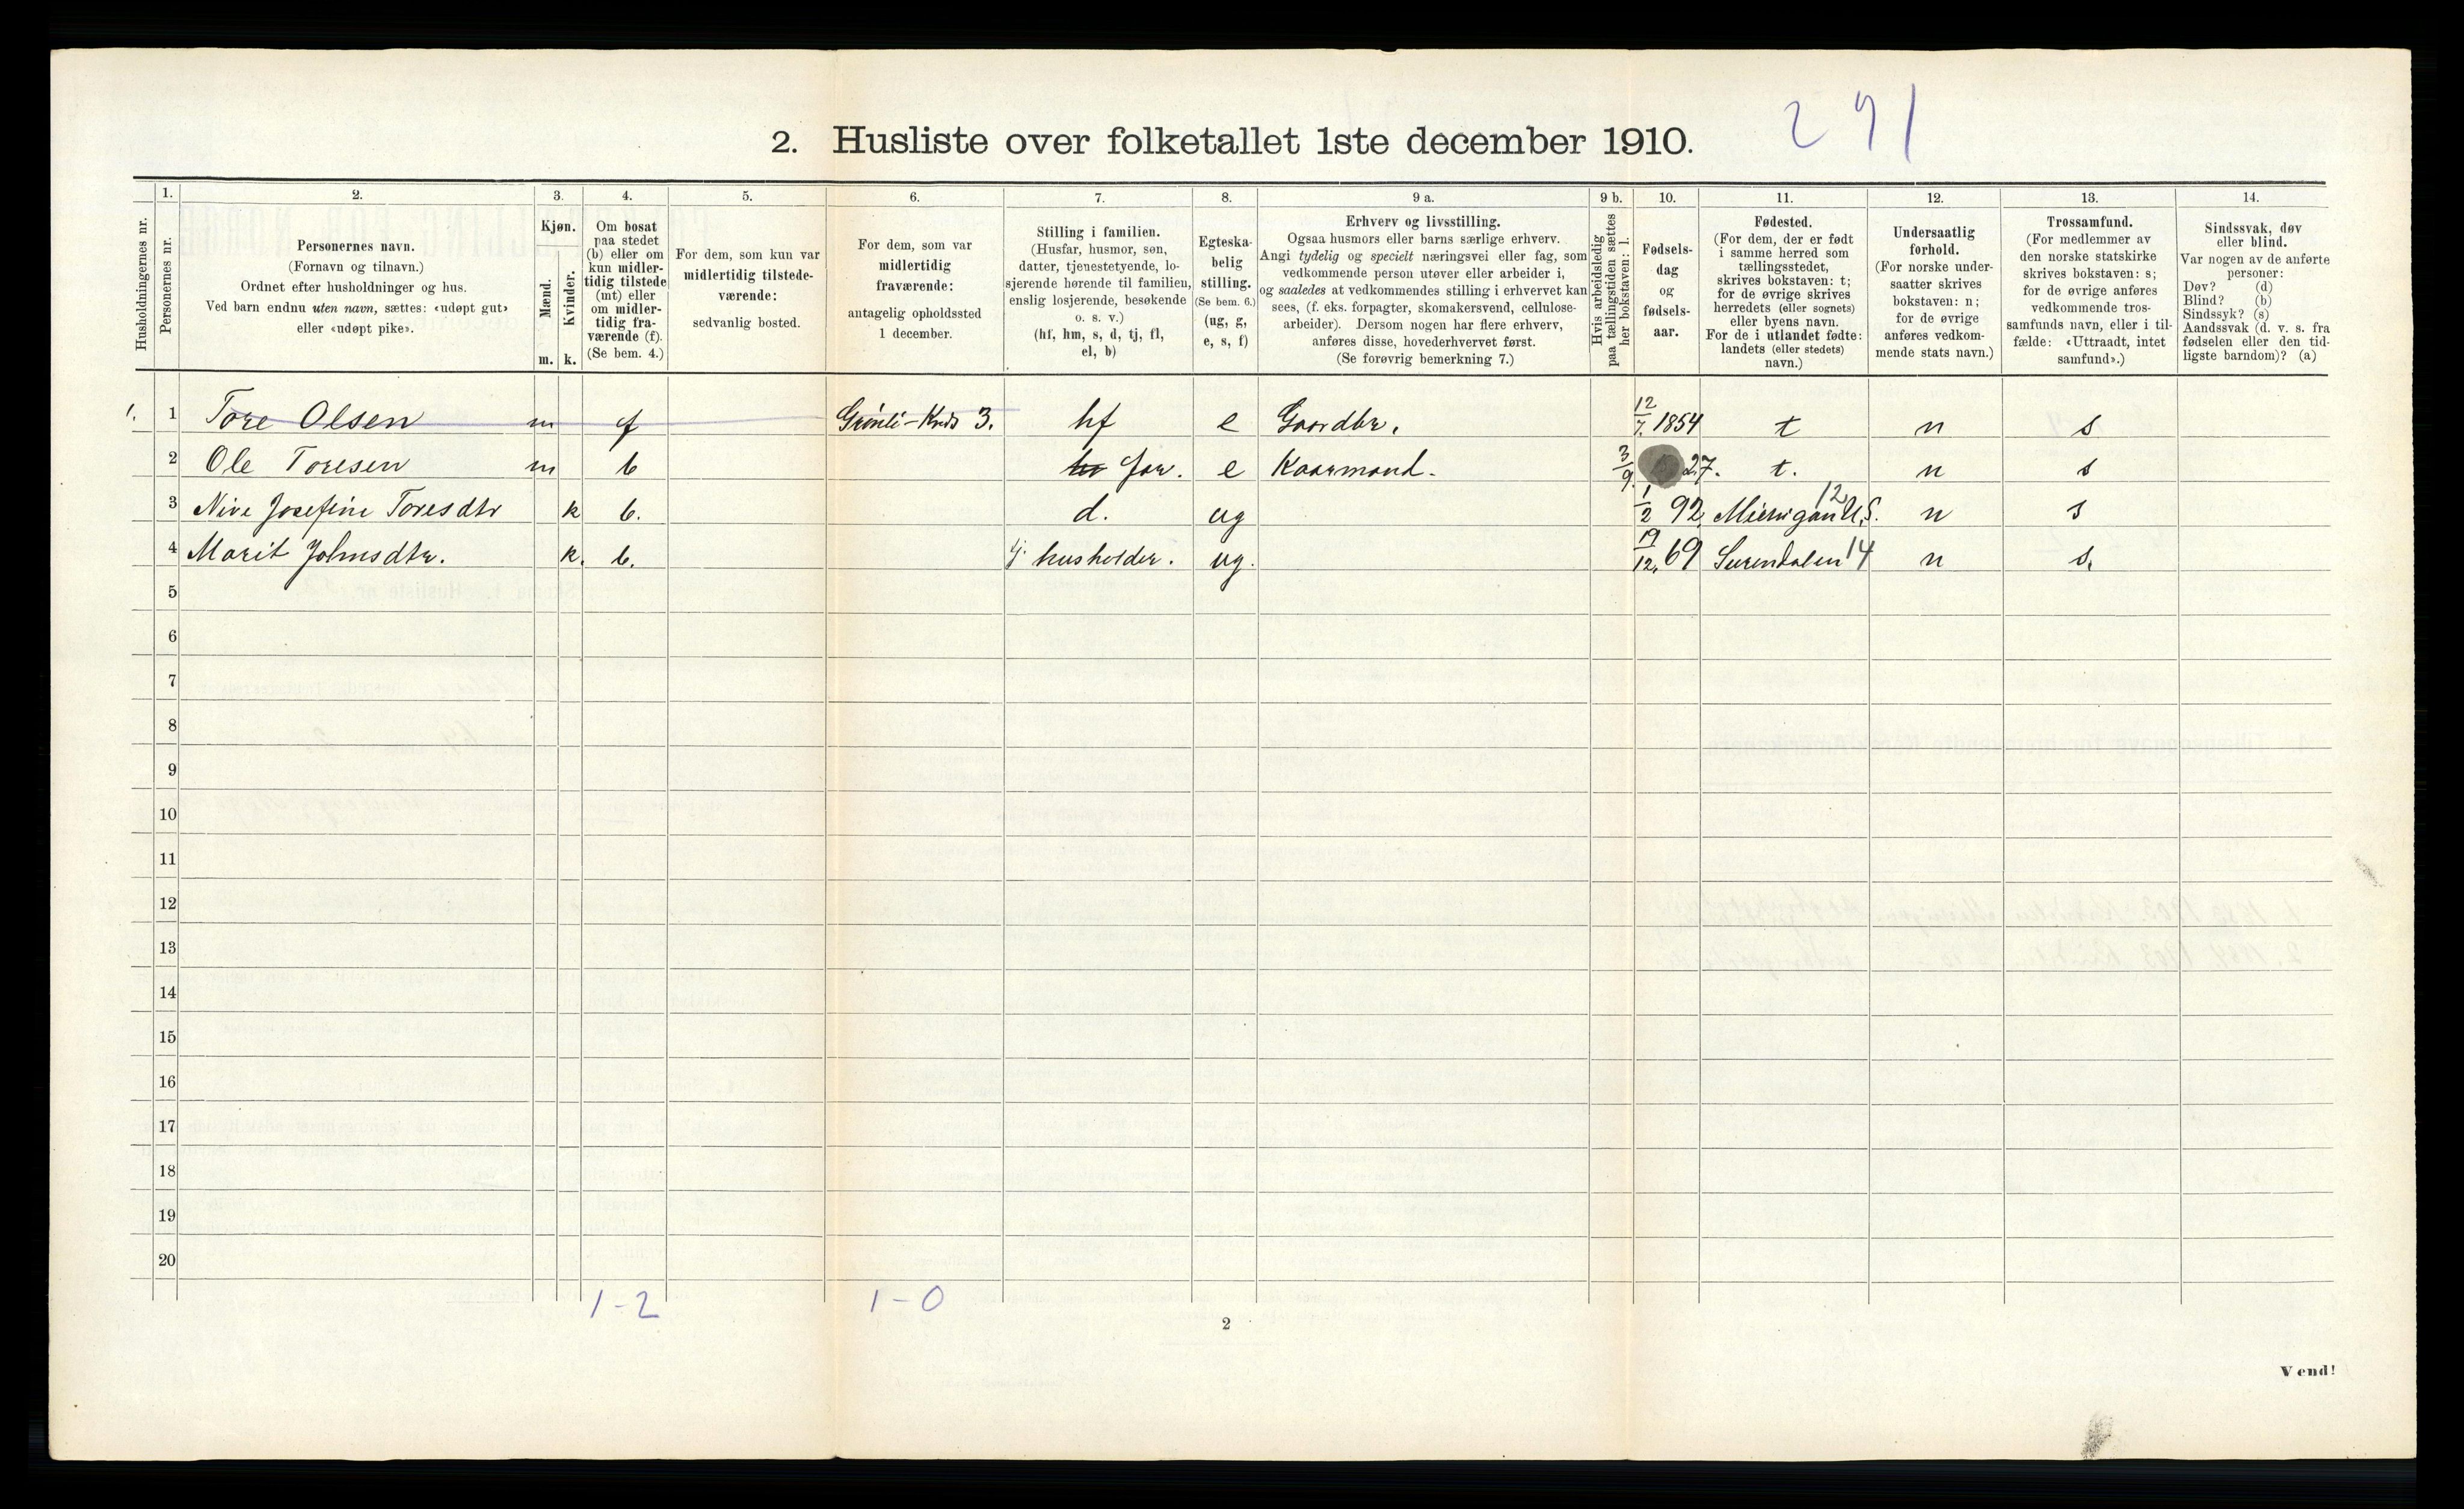 291
2. Husliste over folketallet 1ste december 1910.
Husholdningernes nr.
1.
Personernes nr.
2.
Personernes navn.
(Fornavn og tilnavn.)
Ordnet efter husholdninger og hus.
Ved barn endnu uten navn, sættes: «udøpt gut»
eller «udøpt pike».
3.
Kjøn.
Mænd.
m.
Kvinder.
k.
4.
Om bosat
paa stedet
(b) eller om
kun midler-
tidig tilstede
(mt) eller
om midler-
tidig fra-
værende (f).
(Se bem. 4.)
5.
For dem, som kun var
midlertidig tilstede-
værende:
sedvanlig bosted.
6.
For dem, som var
midlertidig
fraværende:
antagelig opholdssted
1 december.
7.
Stilling i familien.
(Husfar, husmor, søn,
datter, tjenestetyende, lo-
sjerende hørende til familien,
enslig losjerende, besøkende
o. s. v.)
(hf, hm, s, d, tj, fl,
el, b)
8.
Egteska-
belig
stilling.
(Se bem. 6.)
(ug, g,
e, s, f)
9 a.
Erhverv og livsstilling.
Ogsaa husmors eller barns særlige erhverv.
Angi tydelig og specielt næringsvei eller fag, som
vedkommende person utøver eller arbeider i,
og saaledes at vedkommendes stilling i erhvervet kan
sees, (f. eks. forpagter, skomakersvend, cellulose-
arbeider). Dersom nogen har flere erhverv,
anføres disse, hovederhvervet først.
(Se forøvrig bemerkning 7.)
9 b.
Hvis arbeidsledig
paa tællingstiden sættes
her bokstaven: l.
10.
Fødsels-
dag
og
fødsels-
aar.
11.
Fødested.
(For dem, der er født
i samme herred som
tællingsstedet,
skrives bokstaven: t;
for de øvrige skrives
herredets (eller sognets)
eller byens navn.
For de i utlandet fødte:
landets (eller stedets)
navn.)
12.
Undersaatlig
forhold.
(For norske under-
saatter skrives
bokstaven: n;
for de øvrige
anføres vedkom-
mende stats navn.)
13.
Trossamfund.
(For medlemmer av
den norske statskirke
skrives bokstaven: s;
for de øvrige anføres
vedkommende tros-
samfunds navn, eller i til-
fælde: «Uttraadt, intet
samfund».)
14.
Sindssvak, døv
eller blind.
Var nogen av de anførte
personer:
Døv? (d)
Blind? (b)
Sindssyk? (s)
Aandssvak (d. v. s. fra
fødselen eller den tid-
ligste barndom)? (a)
1. 1 Tore Olsen m f Grönli - Kreds 3. hf e Gaardbr. 12/7. 1854 t n s
2 Ole Toresen m b far. e Kaarmand. 3/9. 27. t. n s
3 Nive Josefine Toresdtr k b. d. ug 1/2 92 Michigan U.S. 12 n s
4 Marit Johnsdtr. k. b. tj. husholder. ug. 19/12. 69 Surendalen 14 n s.
5
6
7
8
9
10
11
12
13
14
15
16
17
18
19
20
1-2 1-0
2
Vend!